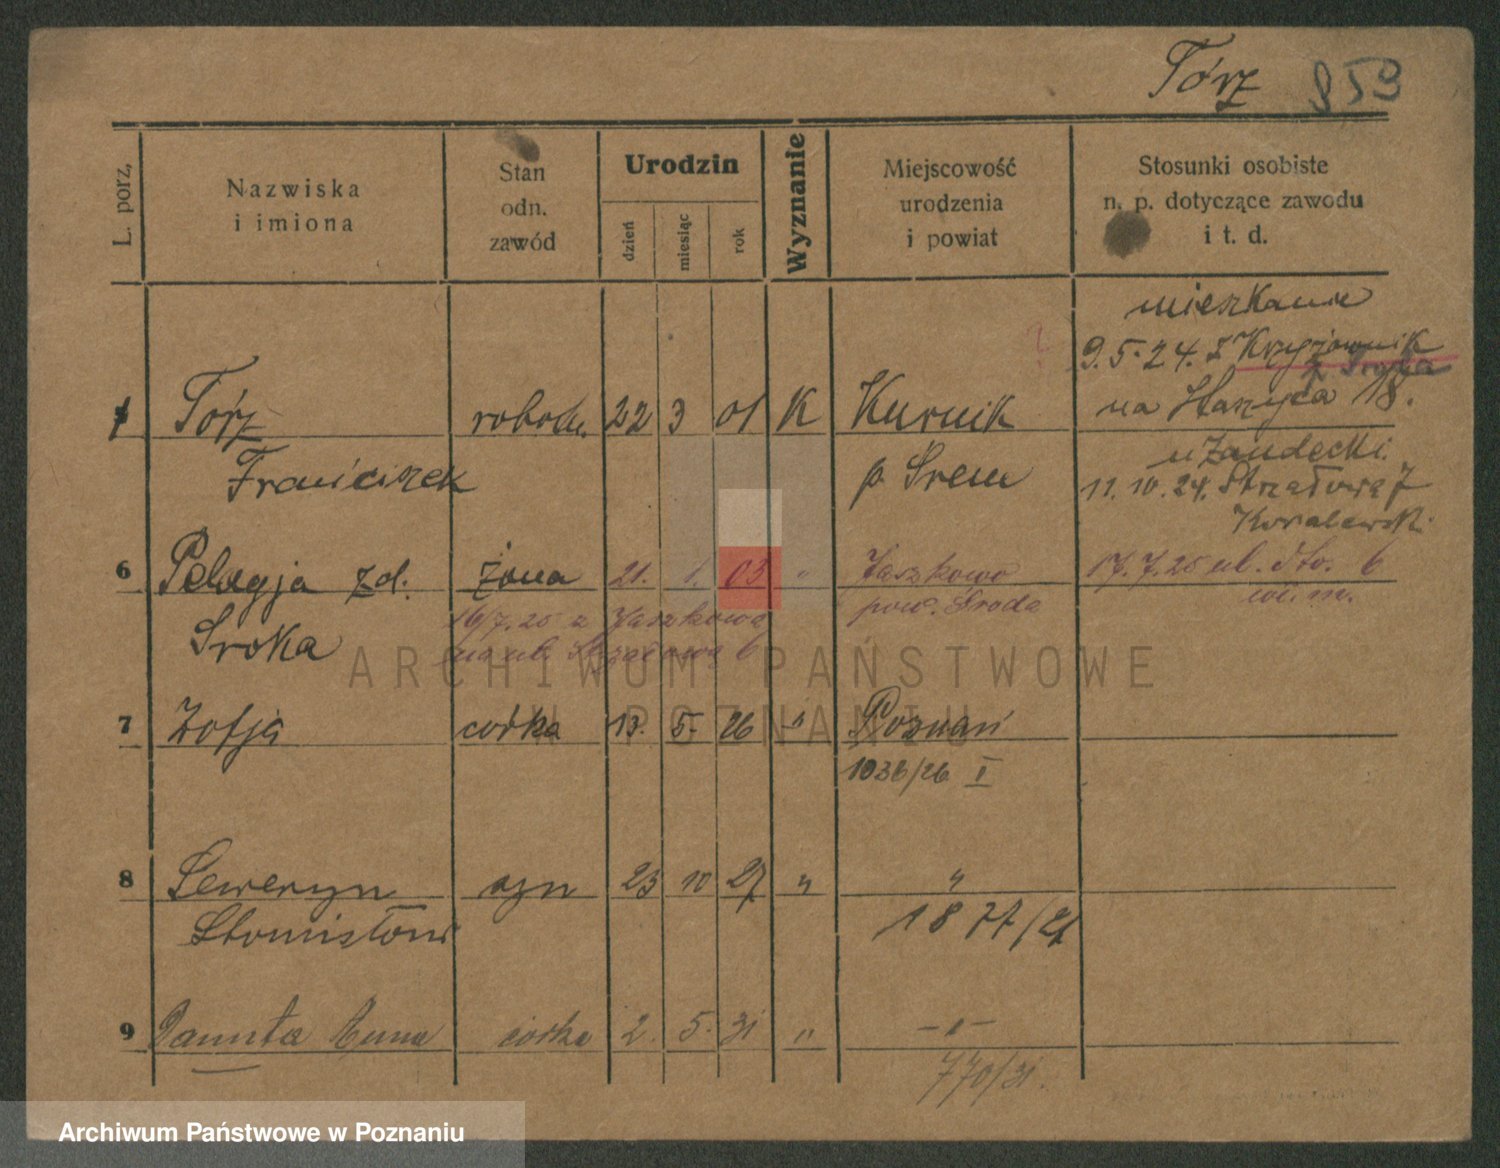 Tórz 959
L. porz.
Nazwiska
i imiona
Stan
odn.
zawód
Urodzin
dzień
miesiąc
rok
Wyznanie
Miejscowość
urodzenia
i powiat
Stosunki osobiste
n. p. dotyczące zawodu
i t. d.
mieszkanie
9.5.24. z
na 18.
Tórz robotn. 22 3 01 K Kurnik
Franciszek p. Srem
11.10.24. Strzałowa 7
6 Pelagja zd. żona 21. 1. 03 " Jaszkowo 17.7.25 ul. 6
Sroka 16/7.25 z Jaszkowa pow. Sroda
na ul. Strzałową 6
7 Zofja córka 13. 5. 26 " Poznań
1036/26 I
8 Seweryn syn 23 10 27 " "
1877/27
9 Danuta Anna córka 2. 5. 31 " -"-
770/31.
ARCHIWUM PAŃSTWOWE
W POZNANIU
Archiwum Państwowe w Poznaniu